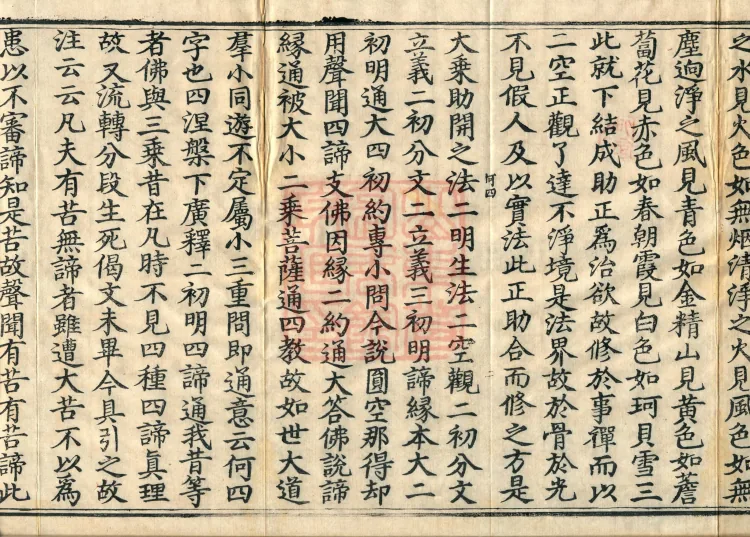 之水見火色如無烟清淨之火見風色如無
塵逈淨之風見青色如金精山見黃色如薝
蔔花見赤色如春朝霞見白色如珂貝雪三
此就下結成助正爲治欲故修於事禪而以
二空正觀了達不淨境是法界故於骨於光
不見假人及以實法此正助合而修之方是
何四
大乘助開之法二明生法二空觀二初分文
立義二初分文二立義三初明諦緣本大二
初明通大四初約專小問今說圓空那得却
用聲聞四諦支佛因緣二約通大答佛說諦
緣通被大小二乘菩薩通四教故如世大道
羣小同遊不定屬小三重問即通意云何四
字也四涅槃下廣釋二初明四諦通我昔等
者佛與三乘昔在凡時不見四種四諦眞理
故又流轉分段生死偈文未畢今具引之故
注云云凡夫有苦無諦者雖遭大苦不以爲
患以不審諦知是苦故聲聞有苦有苦諦此